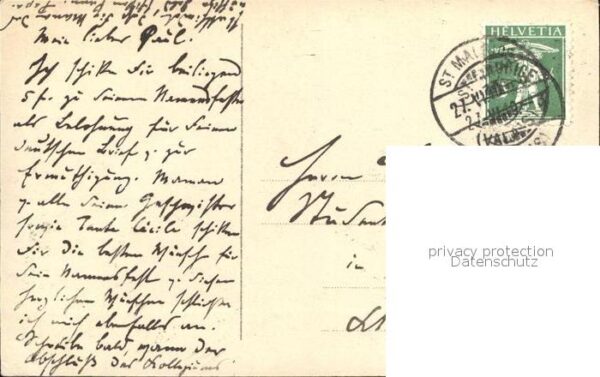 Mein lieber Paul.
Ich schicke Dir beiliegend
5 fr. zu Deinem Namensfeste
als Belohnung für Deinen
deutschen Brief & zur
Ermuthigung. Maman
& alle Deine Geschwister
sowie Tante Cécile schicken
Dir die besten Wünsche für
Dein Namensfest & diesen
herzlichen Wünschen schliesse
ich mich ebenfalls an.
Schreibe bald, wann der
Abschluß des Kollegiums
HELVETIA
ST MAURICE
(VALAIS)
Herrn
Student
in
privacy protection
Datenschutz